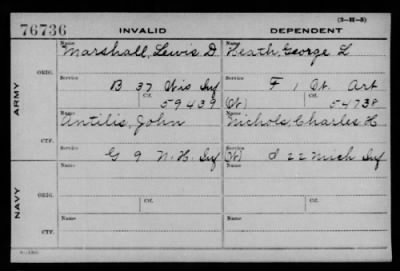 (3-H-5)
76736 INVALID DEPENDENT
Name Name
Marshall, Lewis D. Heath, George L
ARMY
ORIG.
Service Service
B 37 Wis Inf F 1 Ct. Art
Ctf. Ctf.
59439 (W) 54738
Name Name
Antilis, John Nichols, Charles H
CTF.
Service Service
G 9 N. H. Inf (W) I 22 Mich Inf
NAVY
Name Name
ORIG.
Ctf. Ctf.
Name Name
CTF.